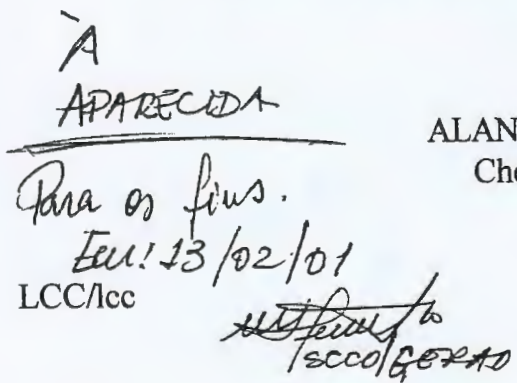 À
APARECIDA
ALAN
Che
Para os fins.
Em: 13/02/01
LCC/lcc
SCCO/GERAD